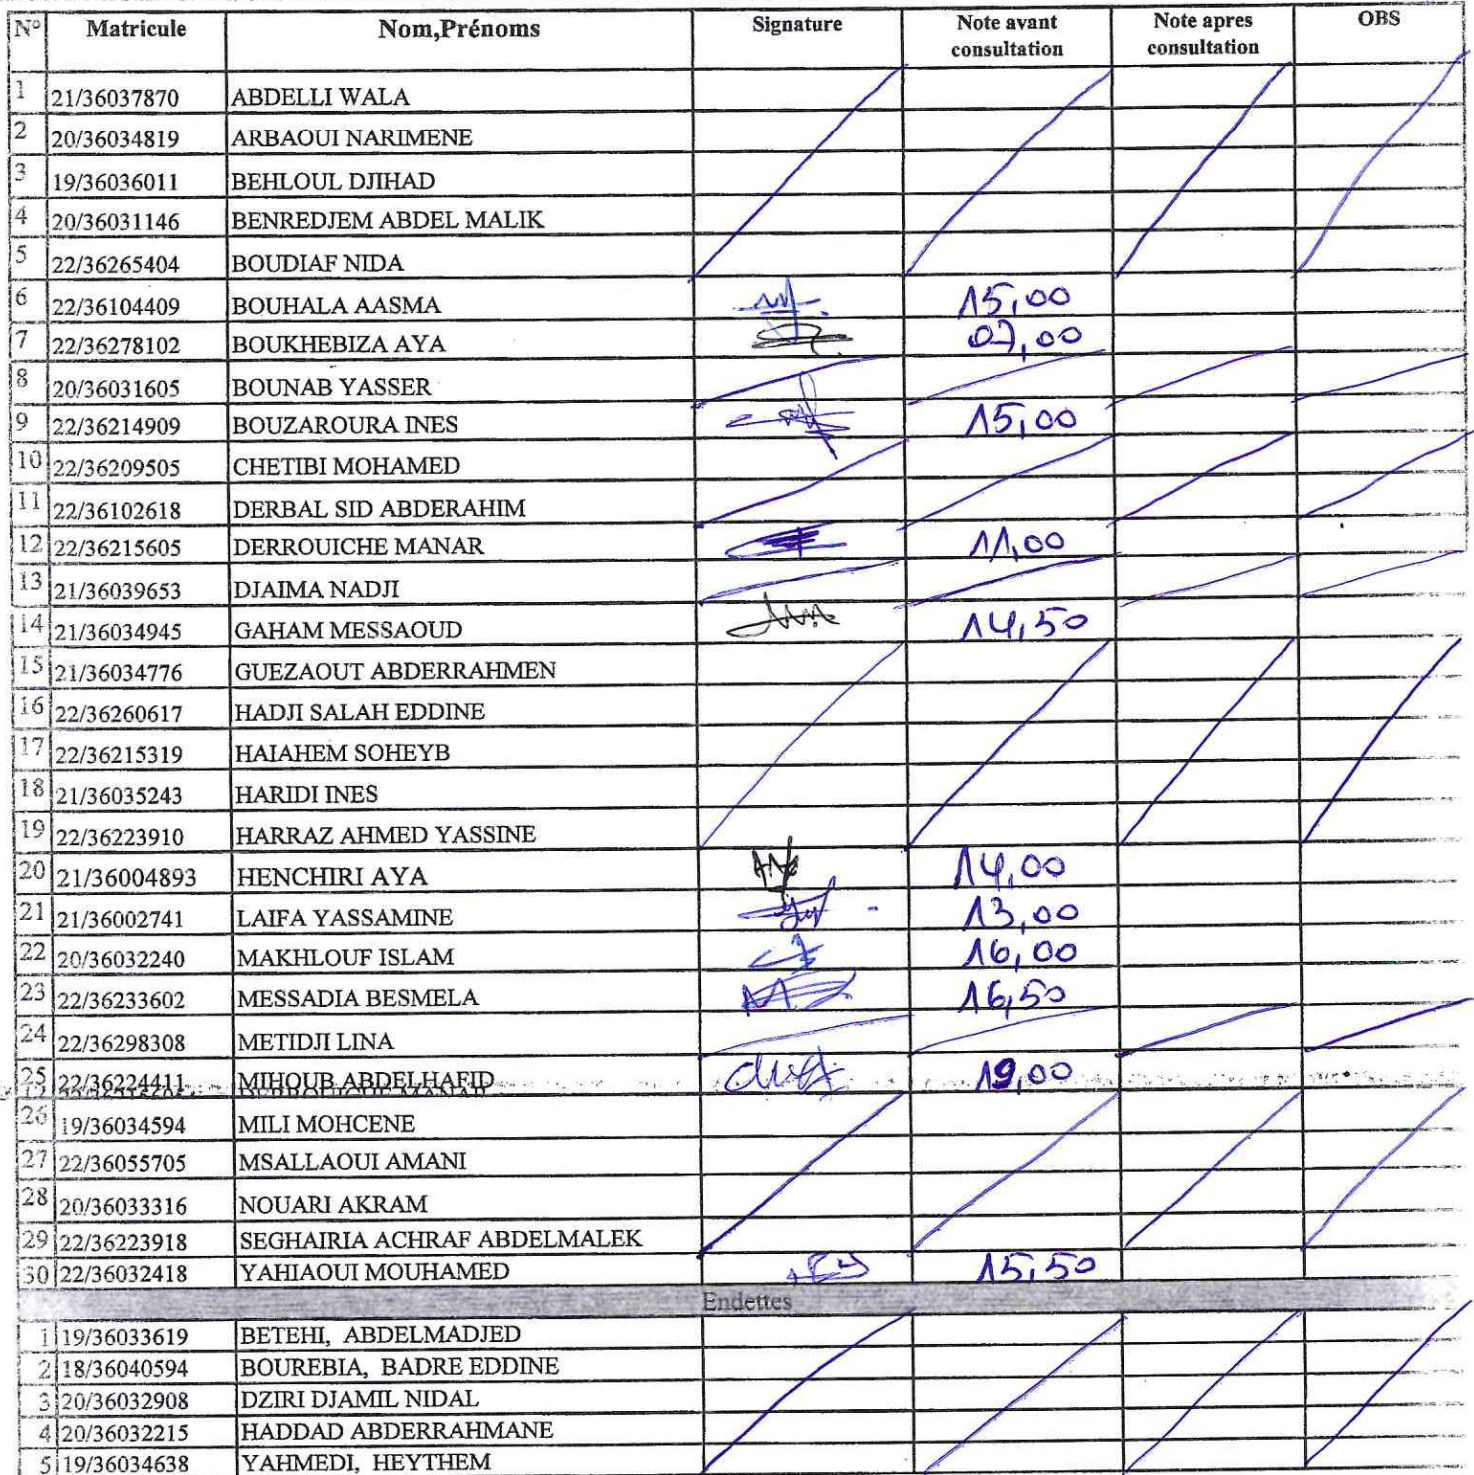 N° Matricule Nom,Prénoms Signature Note avant consultation Note apres consultation OBS
1 21/36037870 ABDELLI WALA
2 20/36034819 ARBAOUI NARIMENE
3 19/36036011 BEHLOUL DJIHAD
4 20/36031146 BENREDJEM ABDEL MALIK
5 22/36265404 BOUDIAF NIDA
6 22/36104409 BOUHALA AASMA 15,00
7 22/36278102 BOUKHEBIZA AYA 07,00
8 20/36031605 BOUNAB YASSER
9 22/36214909 BOUZAROURA INES 15,00
10 22/36209505 CHETIBI MOHAMED
11 22/36102618 DERBAL SID ABDERAHIM
12 22/36215605 DERROUICHE MANAR 11,00
13 21/36039653 DJAIMA NADJI
14 21/36034945 GAHAM MESSAOUD 14,50
15 21/36034776 GUEZAOUT ABDERRAHMEN
16 22/36260617 HADJI SALAH EDDINE
17 22/36215319 HAIAHEM SOHEYB
18 21/36035243 HARIDI INES
19 22/36223910 HARRAZ AHMED YASSINE
20 21/36004893 HENCHIRI AYA 14,00
21 21/36002741 LAIFA YASSAMINE 13,00
22 20/36032240 MAKHLOUF ISLAM 16,00
23 22/36233602 MESSADIA BESMELA 16,50
24 22/36298308 METIDJI LINA
25 22/36224411 MIHOUB ABDELHAFID 19,00
26 19/36034594 MILI MOHCENE
27 22/36055705 MSALLAOUI AMANI
28 20/36033316 NOUARI AKRAM
29 22/36223918 SEGHAIRIA ACHRAF ABDELMALEK
30 22/36032418 YAHIAOUI MOUHAMED 15,50
Endettes
1 19/36033619 BETEHI, ABDELMADJED
2 18/36040594 BOUREBIA, BADRE EDDINE
3 20/36032908 DZIRI DJAMIL NIDAL
4 20/36032215 HADDAD ABDERRAHMANE
5 19/36034638 YAHMEDI, HEYTHEM